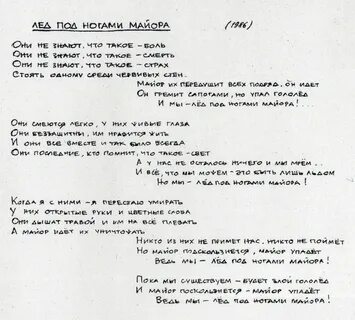 ЛЕД ПОД НОГАМИ МАЙОРА (1986)
ОНИ НЕ ЗНАЮТ, ЧТО ТАКОЕ - БОЛЬ
ОНИ НЕ ЗНАЮТ, ЧТО ТАКОЕ - СМЕРТЬ
ОНИ НЕ ЗНАЮТ, ЧТО ТАКОЕ - СТРАХ
СТОЯТЬ ОДНОМУ СРЕДИ ЧЕРВИВЫХ СТЕН.
МАЙОР ИХ ПЕРЕДУШИТ ВСЕХ ПОДРЯД, ОН ИДЕТ
ОН ГРЕМИТ САПОГАМИ, НО УПАЛ ГОЛОЛЁД
И МЫ - ЛЁД ПОД НОГАМИ МАЙОРА!
ОНИ СМЕЮТСЯ ЛЕГКО, У НИХ ЖИВЫЕ ГЛАЗА
ОНИ БЕЗЗАЩИТНЫ, ИМ НРАВИТСЯ ЖИТЬ
И ОНИ ВСЕ ВМЕСТЕ И ТАК БЫЛО ВСЕГДА
ОНИ ПОСЛЕДНИЕ, КТО ПОМНИТ, ЧТО ТАКОЕ - СВЕТ
А У НАС НЕ ОСТАЛОСЬ НИЧЕГО И МЫ МРЁМ..
И ВСЁ, ЧТО МЫ МОЖЕМ - ЭТО БЫТЬ ЛИШЬ ЛЬДОМ
НО МЫ - ЛЁД ПОД НОГАМИ МАЙОРА!
КОГДА Я С НИМИ - Я ПЕРЕСТАЮ УМИРАТЬ
У НИХ ОТКРЫТЫЕ РУКИ И ЦВЕТНЫЕ СЛОВА
ОНИ ДЫШАТ ТРАВОЙ И ИМ НА ВСЁ ПЛЕВАТЬ
А МАЙОР ИДЁТ ИХ УНИЧТОЖАТЬ
НИКТО ИЗ НИХ НЕ ПОЙМЁТ НАС, НИКТО НЕ ПОЙМЁТ
НО МАЙОР ПОДСКОЛЬЗНЁТСЯ, МАЙОР УПАДЁТ
ВЕДЬ МЫ - ЛЁД ПОД НОГАМИ МАЙОРА!
ПОКА МЫ СУЩЕСТВУЕМ - БУДЕТ ЗЛОЙ ГОЛОЛЁД
И МАЙОР ПОСКОЛЬЗНЁТСЯ - МАЙОР УПАДЁТ
ВЕДЬ МЫ - ЛЁД ПОД НОГАМИ МАЙОРА!